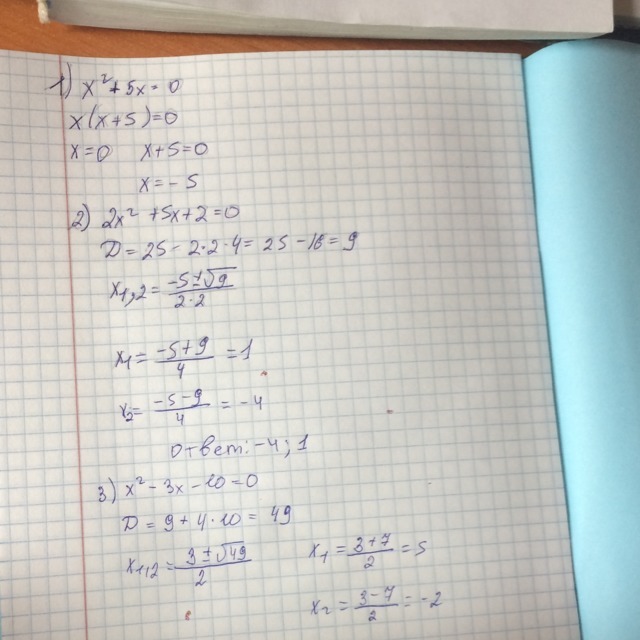 1) x² + 5x = 0
x(x+5)=0
x=0 x+5=0
x=-5
2) 2x² +5x+2=0
D = 25 - 2·2·4 = 25 - 16 = 9
x1,2 = (-5±√9)/(2·2)
x1 = (-5+9)/4 = 1
x2 = (-5-9)/4 = -4
Ответ: -4; 1
3) x² - 3x - 10 = 0
D = 9 + 4·10 = 49
x1,2 = (3±√49)/2 x1 = (3+7)/2 = 5
x2 = (3-7)/2 = -2